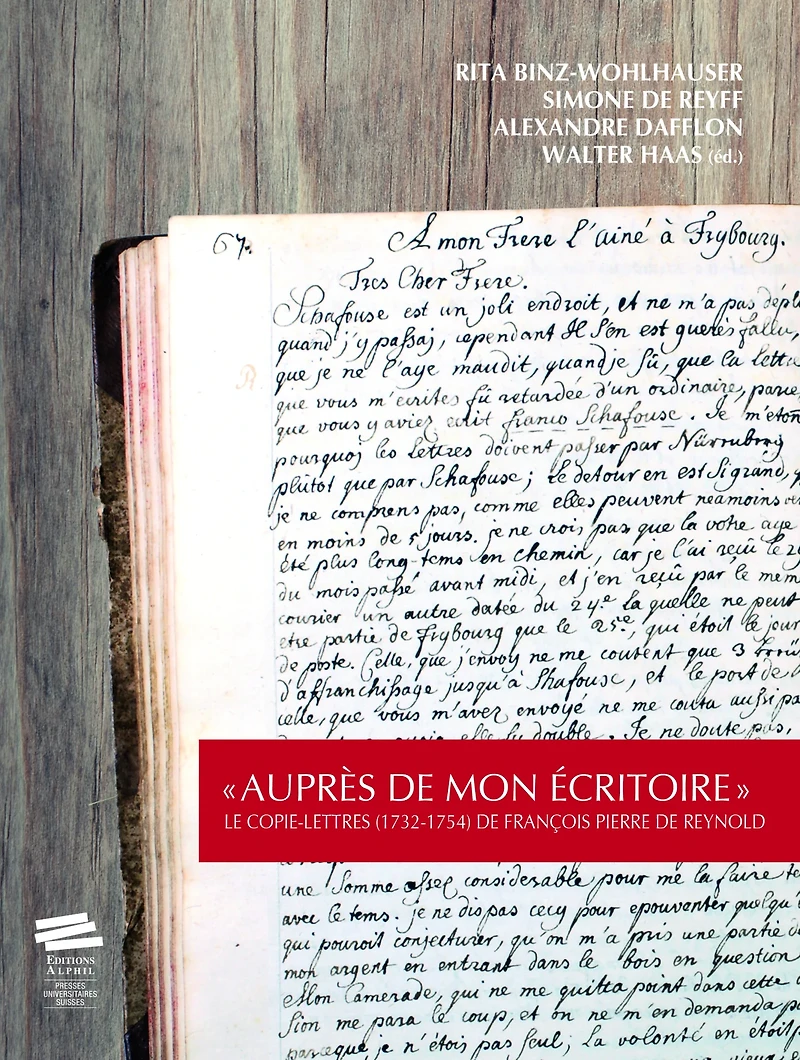 RITA BINZ-WOHLHAUSER
SIMONE DE REYFF
ALEXANDRE DAFFLON
WALTER HAAS (éd.)
67.
A mon Frere l'ainé à Frybourg.
Tres Cher Frere.
Schafouse est un joli endroit, et ne m'a pas dépl
quand j'y passaj, cependant Il s'en est guerès fallu,
que je ne l'aye maudit, quand je sû, que la lettr
que vous m'écrites fû retardée d'un ordinaire, parce
que vous y aviez ecrit franco Schafouse. Je m'éton
pourquoj les lettres doivent passer par Nürrnberg
plûtot que par Schafouse; le detour en est si grand,
je ne comprens pas, comme elles peuvent neamoins
en moins de 5 jours. je ne crois pas que la votre aye
été plus long-tems en chemin, car je l'ai reçû le 2
du mois passé avant midi, et j'en reçû par le mem
courier un autre datée du 24.e la quelle ne peut
etre partie de frybourg que le 25te, qui étoit le jour
de poste. Celle, que j'envoy ne me coutent que 3
d'affranchissage jusqu'à Shafouse, et le port de
celle, que vous m'avez envoyé ne me couta aussi pa
elle fu double. Je ne doute pas,
« AUPRÈS DE MON ÉCRITOIRE »
LE COPIE-LETTRES (1732-1754) DE FRANÇOIS PIERRE DE REYNOLD
une somme assez considerable pour me la faire te
avec le tems. je ne dis pas cecy pour epouvanter quelqu'
qui pouroit conjecturer, qu'on m'a pris une partie d
mon argent en entrant dans le bois en question
Mon Camerade, qui ne me quitta point dans cette
sion me para le coup, et on ne m'en demanda pa
parceque je n'étois pas seul; la volonté en étoit
EDITIONS
ALPHIL
PRESSES
UNIVERSITAIRES
SUISSES